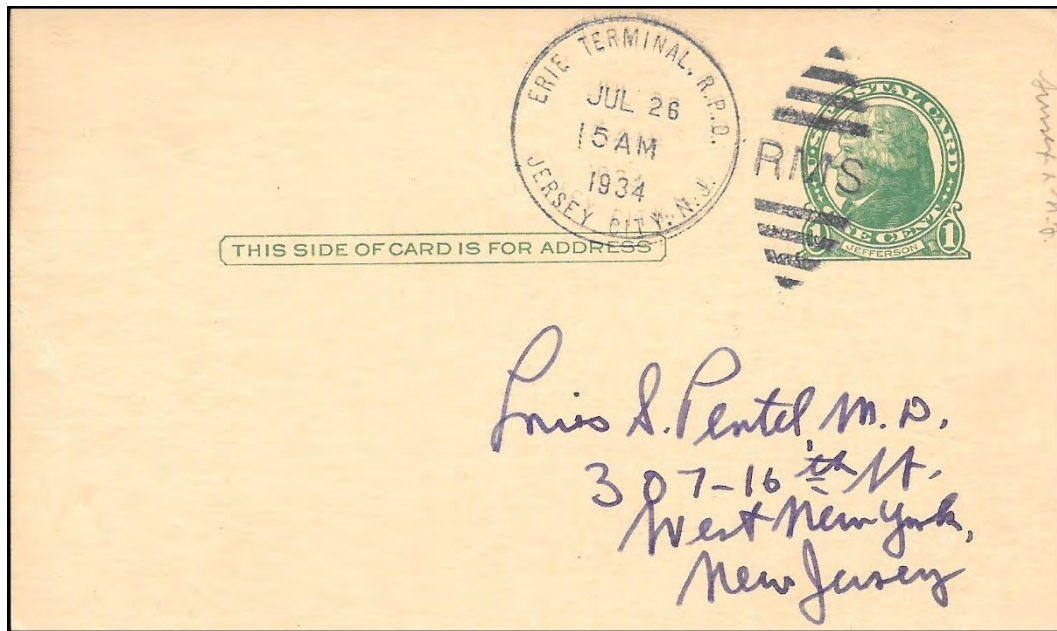 ERIE TERMINAL, R.P.O.
JUL 26
15 AM
1934
JERSEY CITY, N.J.
RMS
U·S·POSTAL CARD
1 ONE CENT 1
JEFFERSON
THIS SIDE OF CARD IS FOR ADDRESS
Louis S. Pentel, M.D.
307-16th St.
West New York,
New Jersey